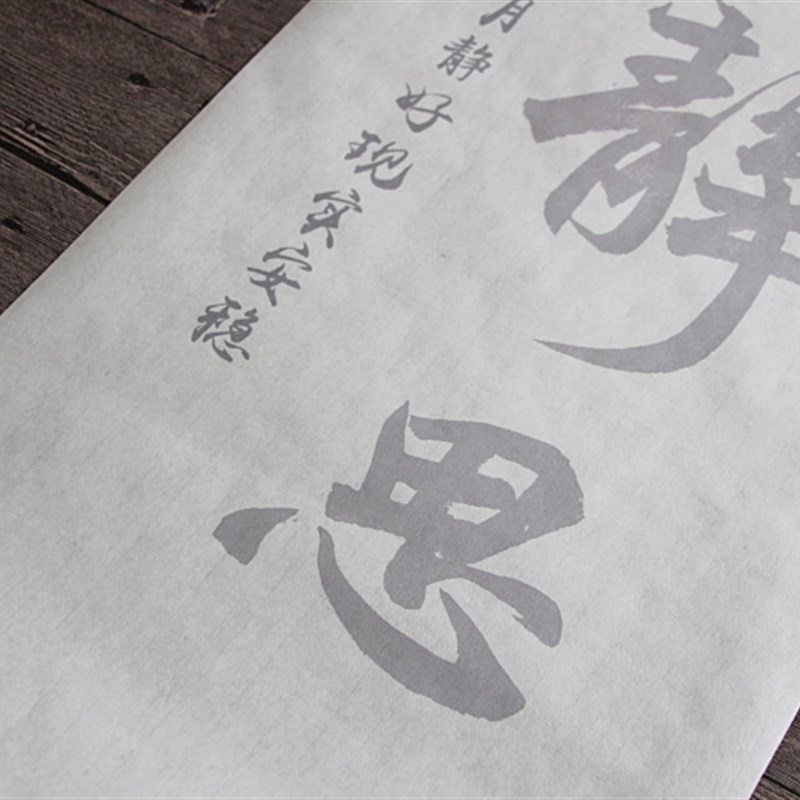 静思
月静好现实安稳